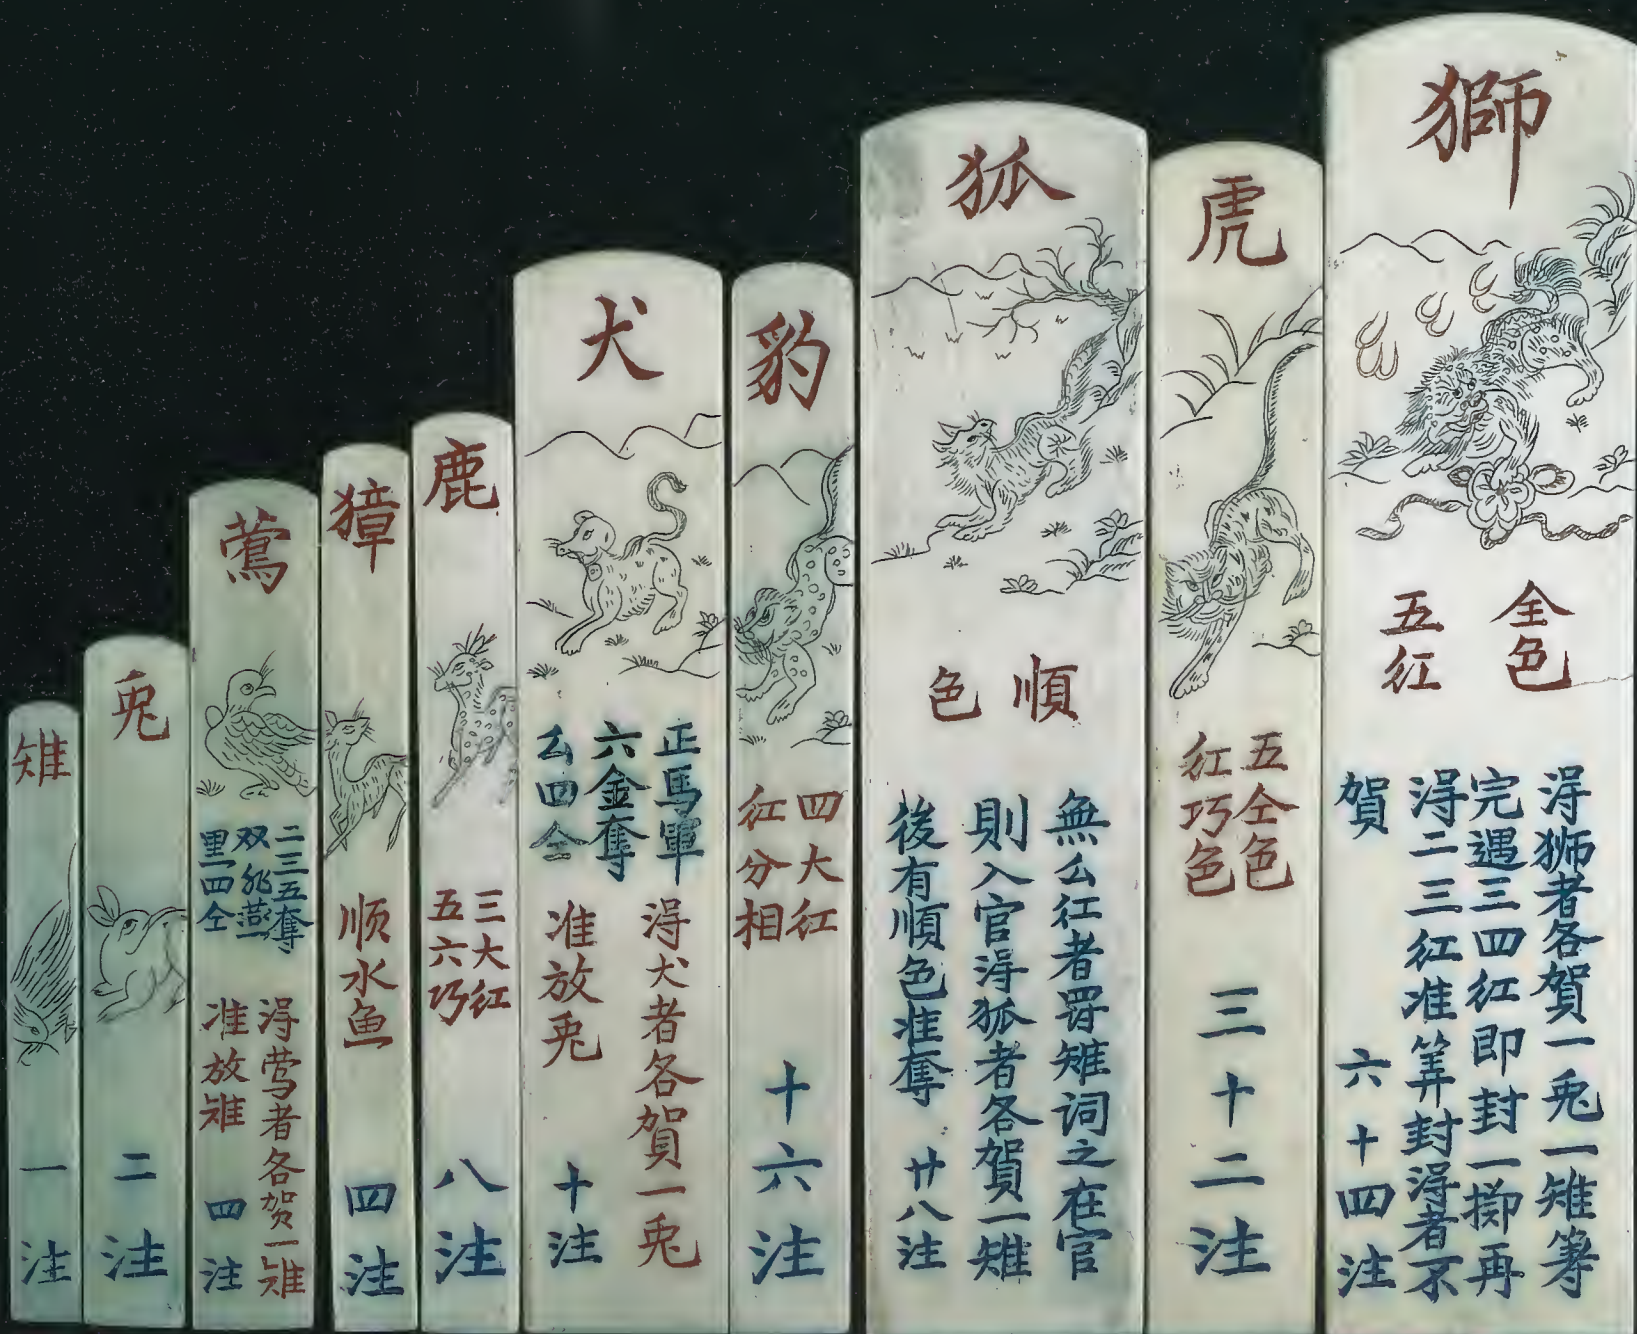 獅
全色
五红
得狮者各賀一兎一雉筹
完遇三四红即封一掷再
得二三红准筭封得者不
賀
六十四注
虎
五仝色
红巧色
三十二注
狐
順
色
無么红者罸雉词之在官
則入官得狐者各賀一雉
後有順色准奪
廿八注
豹
四大红
红分相
十六注
犬
正馬軍
六金奪
么四仝
得犬者各賀一兎
准放兎
十注
鹿
三大红
五六巧
八注
獐
顺水鱼
四注
鶯
二三五奪
双飛燕
黑四仝
得莺者各贺一雉
准放雉
四注
兎
二注
雉
一注